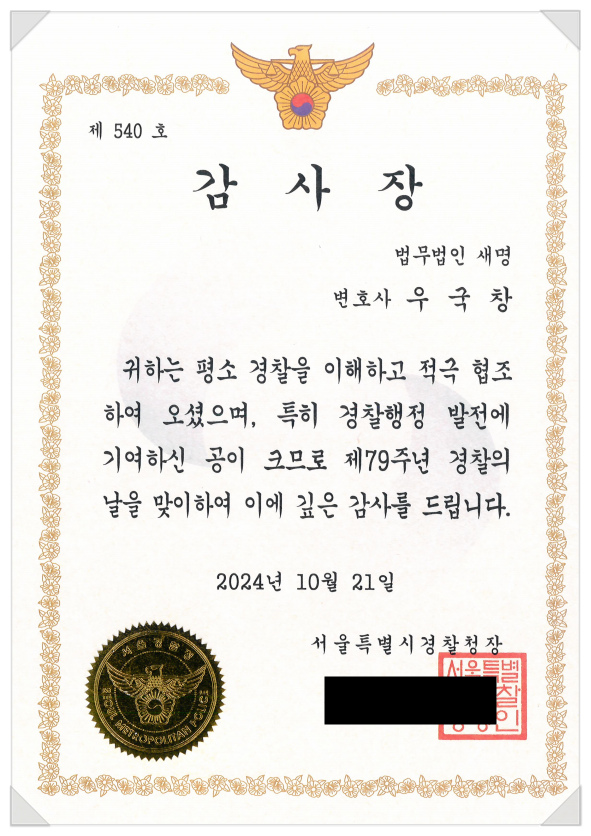 제 540 호
감 사 장
법무법인 새명
변호사 우 국 창
귀하는 평소 경찰을 이해하고 적극 협조
하여 오셨으며, 특히 경찰행정 발전에
기여하신 공이 크므로 제79주년 경찰의
날을 맞이하여 이에 깊은 감사를 드립니다.
2024년 10월 21일
서울특별시경찰청장
서울특별
찰
인
서울경찰청
SEOUL METROPOLITAN POLICE